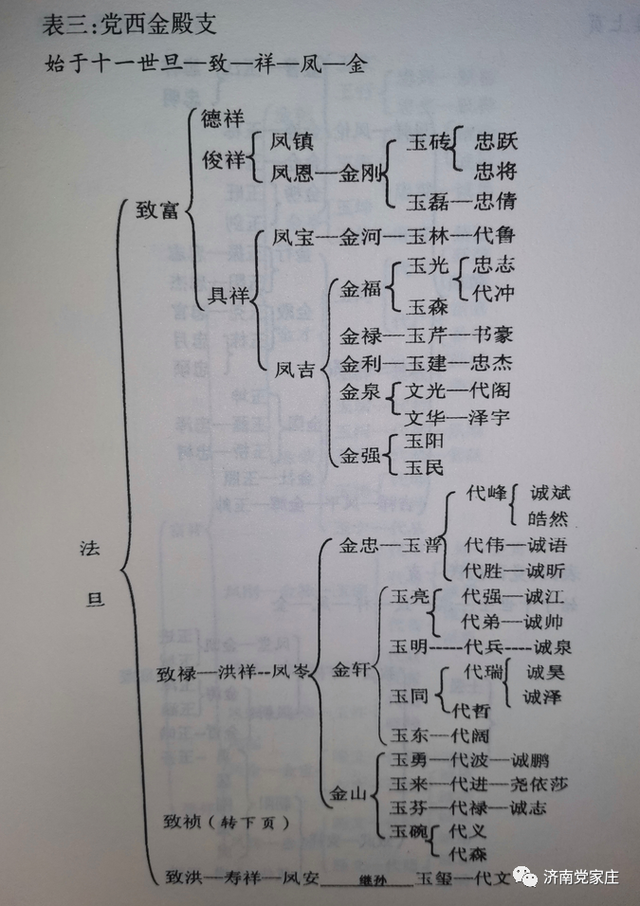 表三:党西金殿支
始于十一世旦—致—祥—凤—金
德祥
俊祥 凤镇
凤恩—金刚 玉砖 忠跃
忠将
玉磊—忠倩
致富
具祥 凤宝—金河—玉林—代鲁
凤吉 金福 玉光 忠志
代冲
玉森
金禄—玉芹—书豪
金利—玉建—忠杰
金泉 文光—代阁
文华—泽宇
金强 玉阳
玉民
法旦
致禄—洪祥--凤岺 金忠—玉普 代峰 诚斌
皓然
代伟—诚语
代胜—诚昕
金轩 玉亮 代强—诚江
代弟—诚帅
玉明-----代兵—诚泉
玉同 代瑞 诚昊
诚泽
代哲
玉东—代阔
金山 玉勇—代波—诚鹏
玉来—代进—尧依莎
玉芬—代禄—诚志
玉碗 代义
代森
致祯(转下页)
致洪—寿祥—凤安 继孙 玉玺—代文
济南党家庄